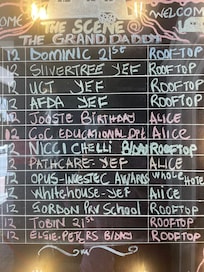 WELCOME
THE SCENE @
THE GRANDDADDY
12 DOMINIC 21ST ROOFTOP
12 SILVERTREE YEF ROOFTOP
12 UCT YEF ROOFTOP
12 AFDA YEF ROOFTOP
12 JOOSTE BIRTHDAY ALICE
12 COC EDUCATIONAL DPT ALICE
12 NICCI CHELLI B/DAY ROOFTOP
12 PATHCARE- YEF ALICE
12 OPUS-INVESTEC AWARDS WHOLE HOTE
12 WHITEHOUSE-YEF ALICE
12 GORDON PVY SCHOOL ROOFTOP
12 TOBIN 21ST ROOFTOP
12 ELSIE-PETERS B/DAY ROOFTOP